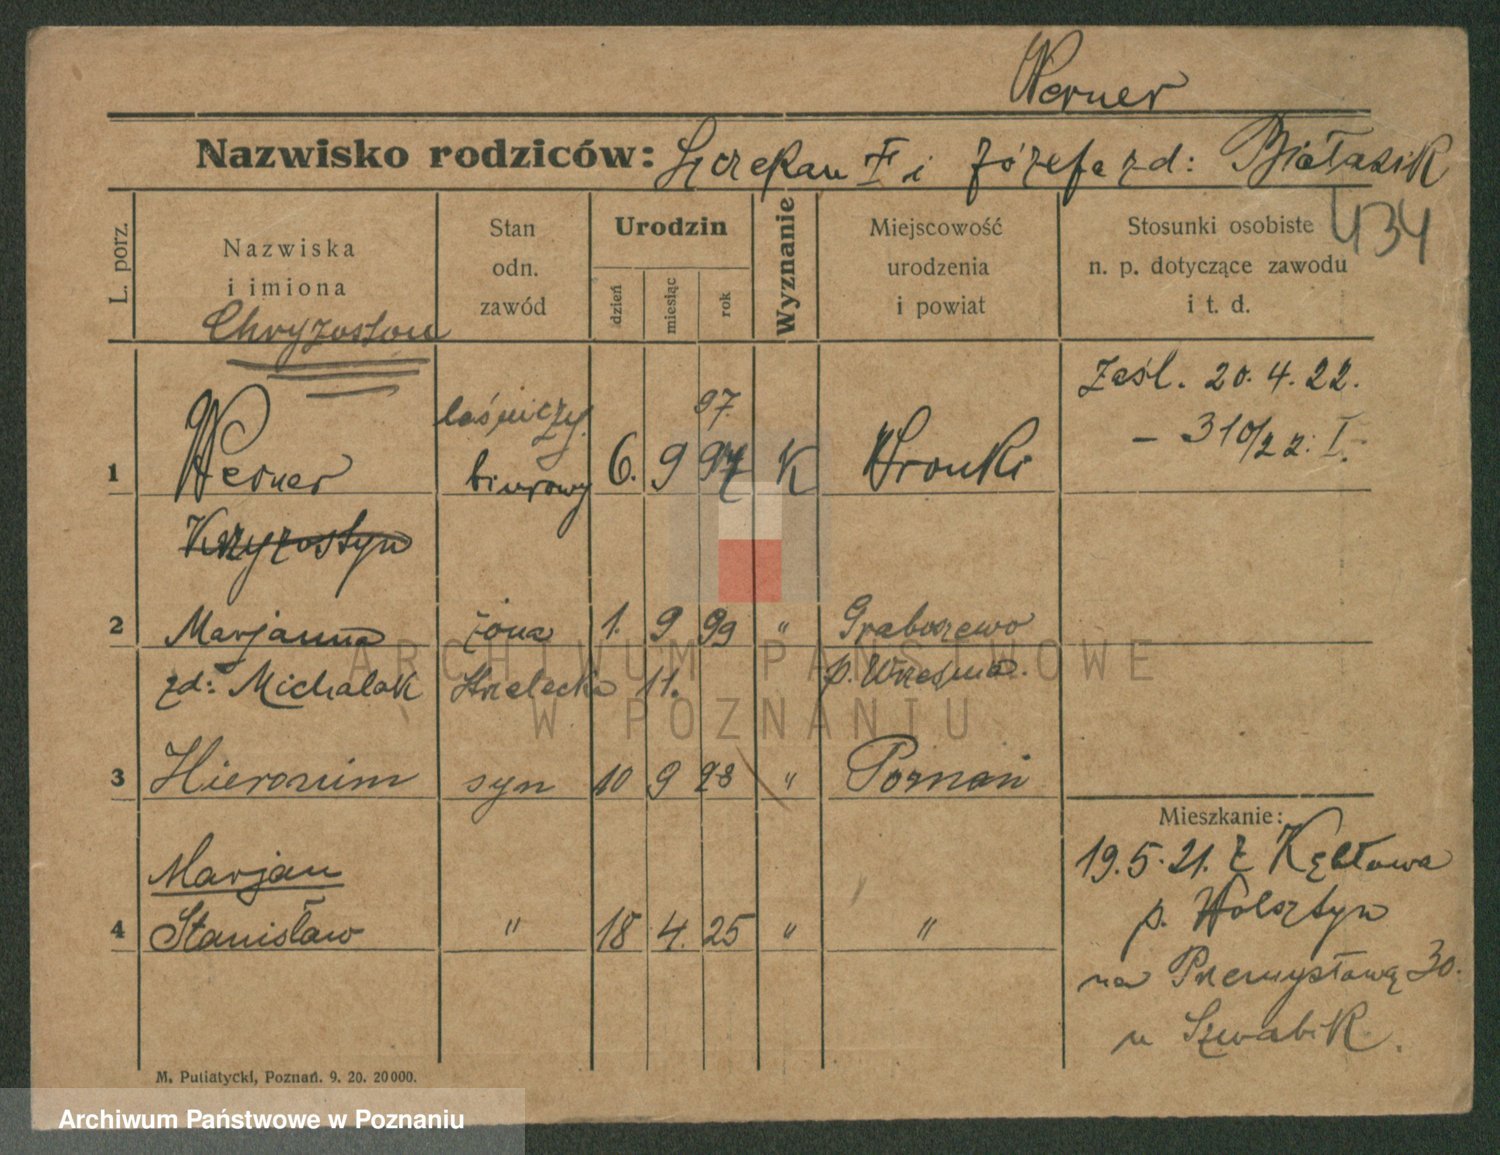 Werner
Nazwisko rodziców: Szczepan F i Józefa zd: Białasik
434
L. porz.
Nazwiska i imiona
Stan odn. zawód
Urodzin
dzień
miesiąc
rok
Wyznanie
Miejscowość urodzenia i powiat
Stosunki osobiste n. p. dotyczące zawodu i t. d.
Chryzostom
1 Werner biurowy 6. 9 97 K Wronki
97.
Zaśl. 20.4.22.
– 310/22 z. I.
Krzyzostyn
2 Marjanna żona 1. 9 99 " Graboszewo
zd: Michalak Strzelecka 11. p. Września.
3 Hieronim syn 10 9 28 " Poznań
Mieszkanie:
19.5.21. z Kębłowa
p. Wolsztyn
na Przemysłową 30.
u Szwabik.
Marjan
4 Stanisław " 18 4. 25 " "
M. Putiatycki, Poznań. 9. 20. 20000.
ARCHIWUM PAŃSTWOWE
W POZNANIU
Archiwum Państwowe w Poznaniu